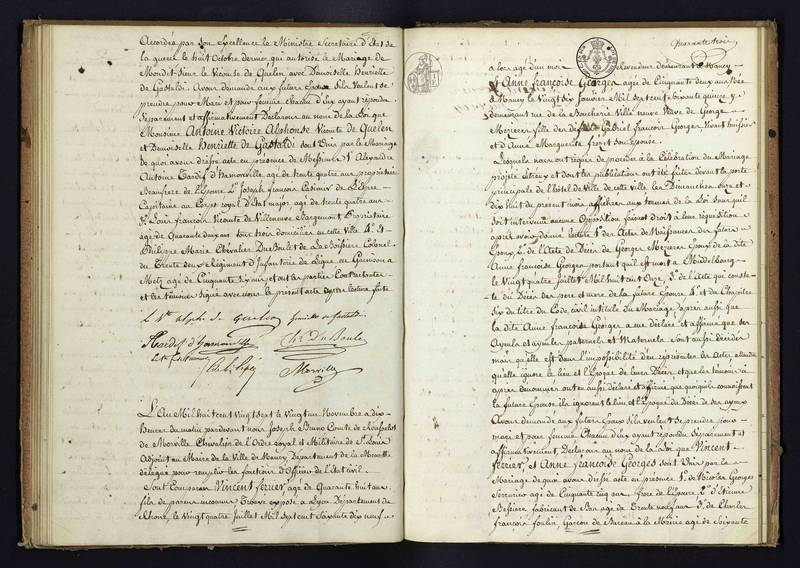 Accordée par son Excellence le Ministre Secretaire d'Etat de
la guerre le huit Octobre dernier qui autorise le Mariage de
Mondit Sieur le Vicomte de Quelen avec Damoiselle Henriette
de Gastaldi. Avons demandé aux futurs Epoux s'ils veulent se
prendre pour Mari et pour femme chacun d'eux ayant répondu
Séparément et affirmativement Declarons au nom de la Loi que
Monsieur Antoine Victoire Alphonse Vicomte de Quelen
et Damoiselle Henriette de Gastaldi sont Unis par le Mariage
de quoi avons dressé acte en presence de Messieurs 1° Alexandre
Antoine Tardif d'Hamonville agé de trente quatre ans propriétaire
Beaufrere de l'Epoux 2° Joseph françois Casimir de
Capitaine au Corps royal d'Etat major agé de trente quatre ans
3° Louis françois Vicomte de Villeneuve Bargemont Propriétaire
agé de Quarante deux ans tous trois domiciliés en cette Ville 4°
Philippe Marie Chevalier DuBoulet de la Boissiere Colonel
du Trente deux.e Régiment d'Infanterie de Ligne en Garnison à
Metz agé de Cinquante Six ans, et ont les parties Contractantes
et les temoins Signé avec nous le présent acte après lecture faite
le Vte alph de Quelen henriette de gastaldi
Tardif d'hamonville Ch. DuBoule
Morville
L'An Mil huit cent Vingt Sept le Vingt un Novembre à dix
heures du matin pardevant nous Joseph Bruno Comte de
de Morville Chevalier de l'Ordre royal et Militaire de St Louis
Adjoint au Maire de la Ville de Nancy Département de la Meurthe
délégué pour remplir les fonctions d'Officier de l'Etat civil.
Sont Comparus Vincent ferrier agé de Quarante huit ans
fils de parens inconnus Trouvé exposé à Lyon Département du
Rhone, le Vingt quatre Juillet Mil Sept cent Soixante dix neuf
Quarante trois
alors agé d'un mois revendeur demeurant à Nancy
Et Anne françoise Georges agée de Cinquante deux ans Née
à Nancy le Vingt Six Janvier Mil Sept cent Soixante quinze y
demeurant rue de la Boucherie Ville neuve Veuve de George
Mezierer fille des defunts Gabriel françois Georges Vivant huissier
et d'Anne Marguerite fropet son Epouse.
Lesquels nous ont requis de procéder à la Célébration du Mariage
projeté entreux et dont les publications ont été faites devant la porte
principale de l'hotel de Ville de cette Ville les Dimanches Onze et
dix huit du present mois afficher aux termes de la Loi sans qu'il
soit intervenu aucune Opposition faisant droit à leur réquisition
après avoir donné lecture 1° des Actes de Naissances des futurs
Epoux 2° de l'Acte de Décès de Georges Mezierer Epoux de la dite
Anne françoise Georges portant qu'il est mort à Middelbourg
le Vingt quatre Juillet Mil huit cent Onze 3° de l'Acte qui consta-
te du Décès des pere et mere de la future Epouse 4° et du Chapitre
Six du titre du Code civil intitulé du Mariage, après aussi que
la dite Anne françoise Georges a été déclaré et affirmé que ses
Ayeuls et ayeules paternels et Maternels sont aussi décédés
mais qu'elle est dans l'impossibilité d'en représenter les Actes, attendu
qu'elle ignore le lieu et l'Epoque de leurs Décès, et que les témoins ci
après dénommés ont eu aussi déclaré et affirmé que quoiqu'ils connaissent
la future Epouse ils ignorent le lieu et l'Epoque du Décès de ses ayeux
Avons demandé aux futurs Epoux s'ils veulent se prendre pour
mari et pour femme Chacun d'eux ayant répondu Séparément et
affirmativement, Declarons au nom de la Loi que Vincent
ferrier, et Anne françoise Georges sont Unis par le
Mariage de quoi avons dressé acte en présence 1° de Nicolas Georges
Serrurier agé de Cinquante Cinq ans frere de l'Epouse 2° d'Etienne
Bessiere fabricant de Bas agé de Trente neuf ans 3° de Charles
françois foulin, Garçon de Bureau à la Mairie agé de Soixante